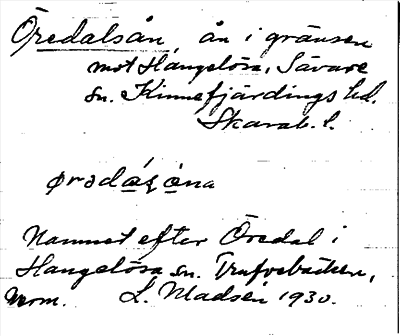 Öredalsån, ån i gränsen
mot Hangelösa, Sävare
sn. Kinnefjärdings hd.
Skarab. l.
ørədáʂ åna
Namnet efter Öredal i
Hangelösa sn. Trafvebäcken,
Norm. L. Madsén 1930.